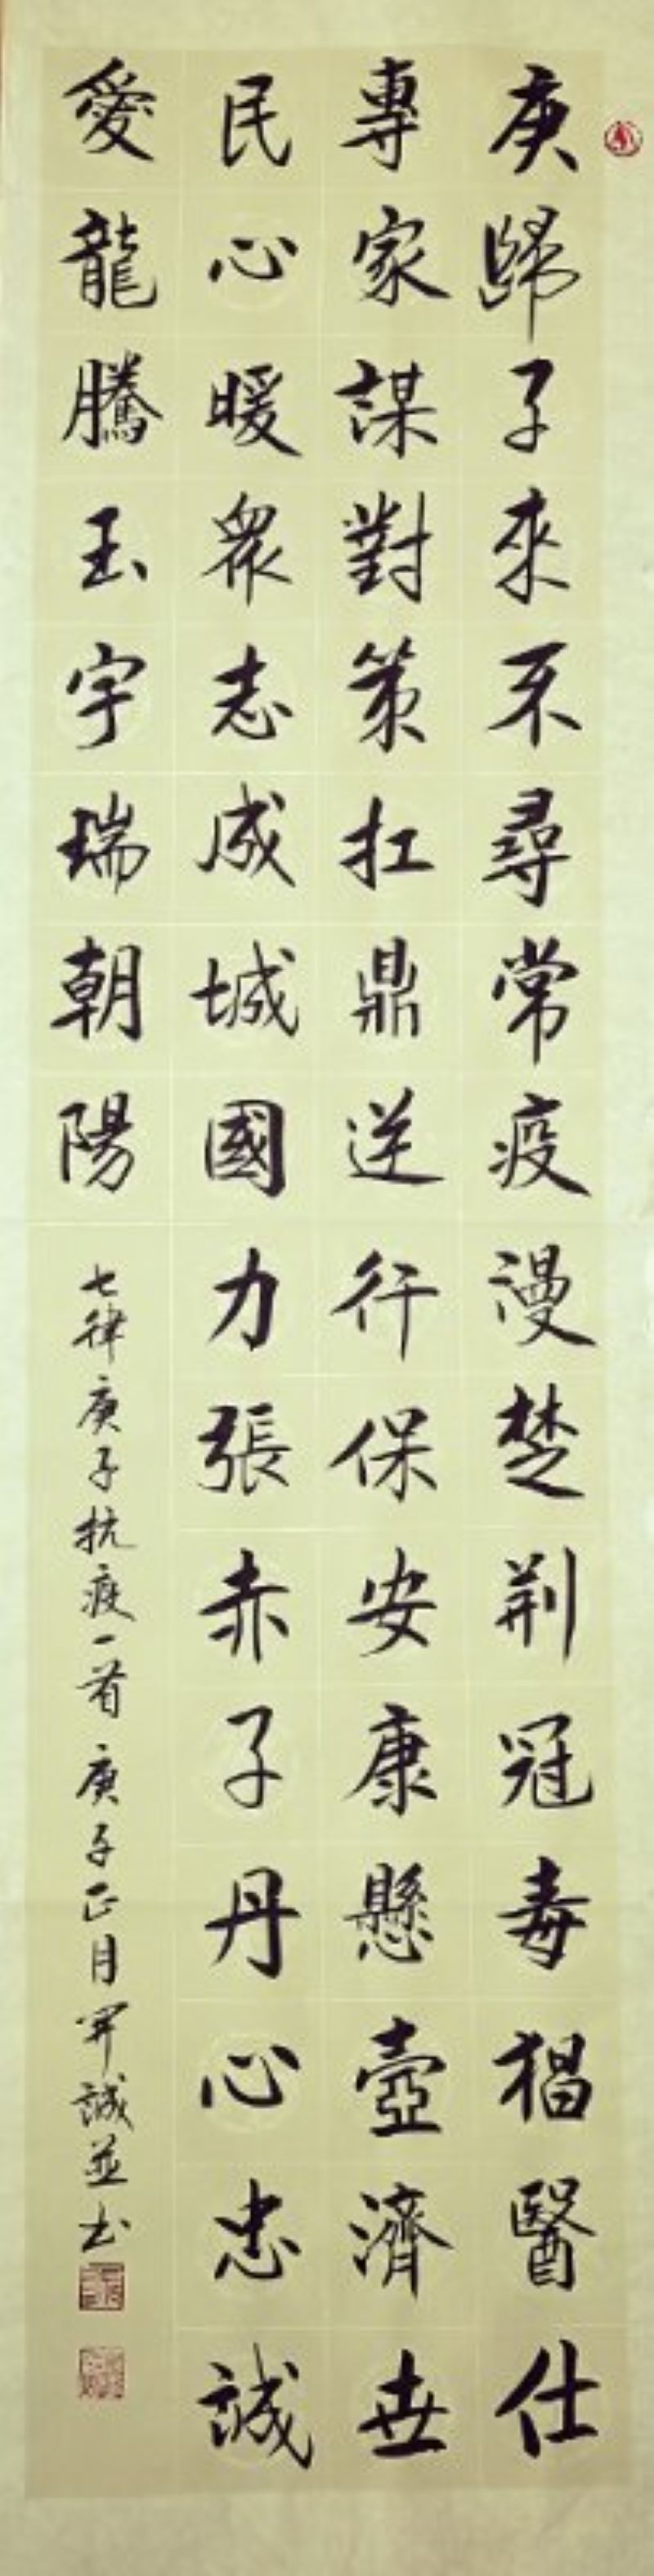 庚歸子來不尋常疫漫楚荆冠毒猖醫仕
專家謀對策扛鼎逆行保安康懸壺濟世
民心暖衆志成城國力張赤子丹心忠誠
愛龍騰玉宇瑞朝陽
七律庚子抗疫一首 庚子正月 誠並书